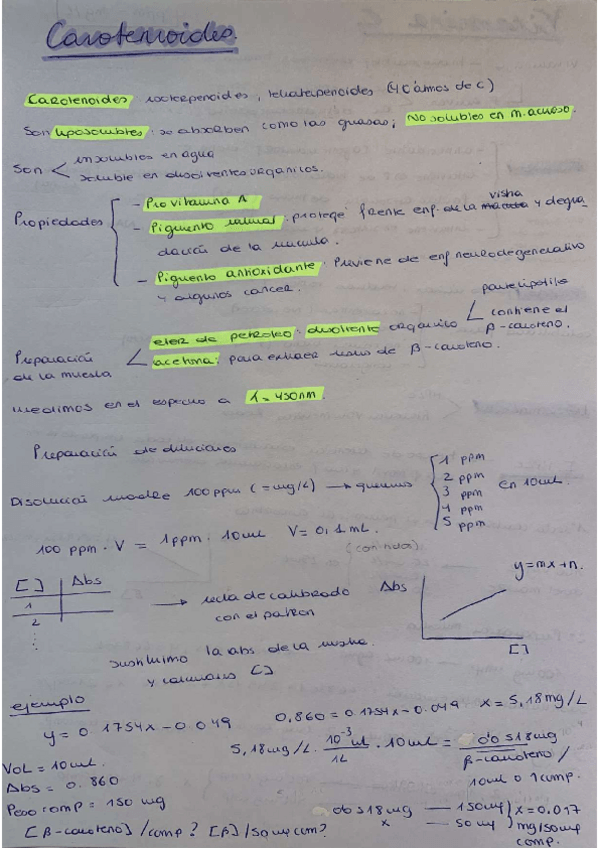 Carotenoides.
Carotenoides isoterpenoides, tetraterpenoides (40 átomos de C)
Son liposolubles: se absorben como las grasas; No solubles en m. acuoso.
Son < insolubles en agua
soluble en disolventes orgánicos.
Propiedades { - Provitamina A
- Pigmento natural: protege frente enf. de la vista y degra
dación de la mácula.
- Pigmento antioxidante. Previene de enf neurodegenerativo
y algunos cancer.
Preparación de la muestra < eter de petroleo: disolvente orgánico < parte lipofila
contiene el β-caroteno.
acetona: para extraer resto de β-caroteno.
medimos en el espectro a λ = 450nm.
Preparación de diluciones
Disolución madre 100 ppm (= mg/L) → queremos { 1 ppm
2 ppm
3 ppm
4 ppm
5 ppm
en 10mL.
100 ppm · V = 1 ppm · 10mL V = 0,1 mL.
[ ] | Abs
1
2
⋮
→ recta de calibrado
con el patrón
Abs
[ ]
y = mx + n.
sustituimo la abs de la mstra.
y calculamos [ ]
ejemplo
y = 0.1754x - 0.049
0,860 = 0.1754x - 0.049 x = 5,18 mg/L
5,18 mg/L · 10⁻³ / 1L · 10mL = 0'0518mg
β-caroteno /
10mL o 1comp.
Vol = 10mL.
Abs = 0.860
Peso comp = 150 mg
[β-caroteno] /comp? [β]/50mg com?
0'0518mg — 150mg
x — 50mg } x = 0.017
mg/50mg
comp.